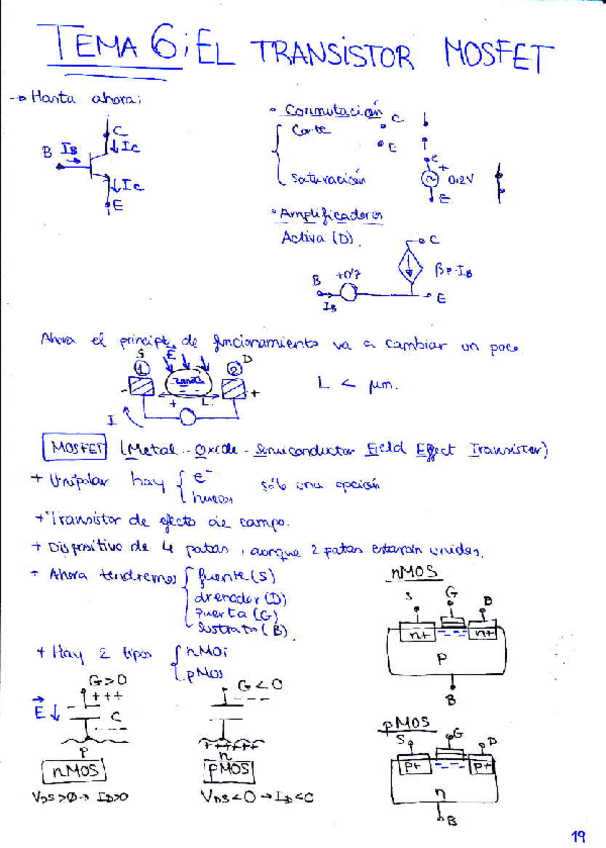 TEMA 6: EL TRANSISTOR MOSFET
→ Hasta ahora:
C
B IB ↓IC
↓IC
E
• Conmutación
Corte
C
E
Saturación
C
+
0.2V
E
• Amplificadores
Activa (D).
C
B +0'7 βF·IB
IB E
Ahora el principio de funcionamiento va a cambiar un poco
S E D
1 canal 2
- +
+ L
I
L < μm.
MOSFET (Metal - Oxide - Semiconductor Field Effect Transistor)
+ Unipolar hay { e⁻ sólo una opción
huecos
+ Transistor de efecto de campo.
+ Dispositivo de 4 patas, aunque 2 patas estarán unidas.
+ Ahora tendremos { fuente (S)
drenador (D)
Puerta (G)
Sustrato (B).
nMOS
S G D
n+ n+
P
B
+ Hay 2 tipos { nMOS
pMOS
G>0
+++
E ↓ C
---
P
nMOS
VDS>0 → ID>0
G<0
---
++++++
n
PMOS
VDS<0 → ID<0
pMOS
S G D
P+ P+
n
B
19